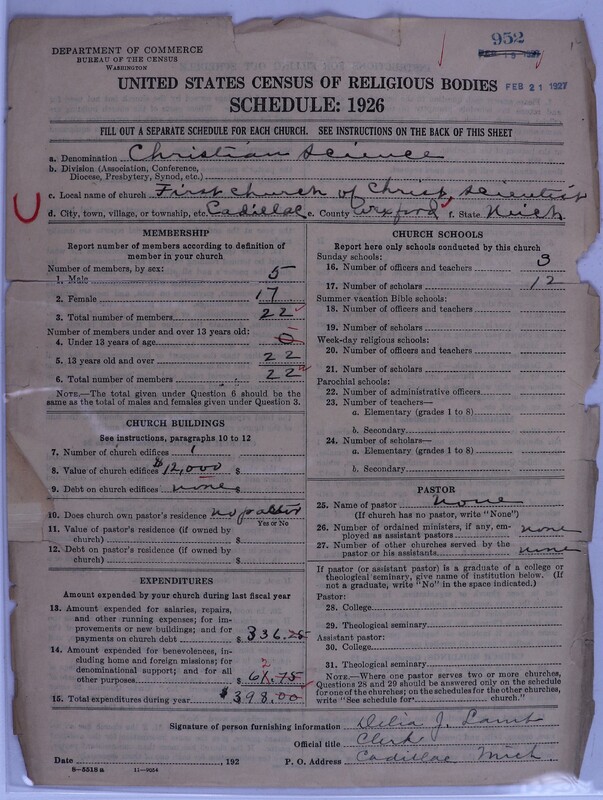 952
FEB 19 1927
DEPARTMENT OF COMMERCE
BUREAU OF THE CENSUS
WASHINGTON
UNITED STATES CENSUS OF RELIGIOUS BODIES
FEB 21 1927
SCHEDULE: 1926
FILL OUT A SEPARATE SCHEDULE FOR EACH CHURCH. SEE INSTRUCTIONS ON THE BACK OF THIS SHEET
a. Denomination Christian Science
b. Division (Association, Conference, Diocese, Presbytery, Synod, etc.)
c. Local name of church First Church of Christ, Scientist
d. City, town, village, or township, etc. Cadillac e. County Wexford f. State Mich
MEMBERSHIP
Report number of members according to definition of
member in your church
Number of members, by sex:
1. Male 5
2. Female 17
3. Total number of members 22
Number of members under and over 13 years old:
4. Under 13 years of age 0
5. 13 years old and over 22
6. Total number of members 22
NOTE.—The total given under Question 6 should be
same as the total of males and females given under Question 3.
CHURCH BUILDINGS
See instructions, paragraphs 10 to 12
7. Number of church edifices 1
8. Value of church edifices $12,000 $
9. Debt on church edifices none $
10. Does church own pastor's residence no pastor
Yes or No
11. Value of pastor's residence (if owned by
church) $
12. Debt on pastor's residence (if owned by
church) $
EXPENDITURES
Amount expended by your church during last fiscal year
13. Amount expended for salaries, repairs,
and other running expenses; for im-
provements or new buildings; and for
payments on church debt $ 336.25
14. Amount expended for benevolences,
including home and foreign missions; for
denominational support; and for all
other purposes $ 61.75
2
15. Total expenditures during year $ 398.00
CHURCH SCHOOLS
Report here only schools conducted by this church
Sunday schools:
16. Number of officers and teachers 3
17. Number of scholars 12
Summer vacation Bible schools:
18. Number of officers and teachers
19. Number of scholars
Week-day religious schools:
20. Number of officers and teachers
21. Number of scholars
Parochial schools:
22. Number of administrative officers
23. Number of teachers—
a. Elementary (grades 1 to 8)
b. Secondary
24. Number of scholars—
a. Elementary (grades 1 to 8)
b. Secondary
PASTOR
25. Name of pastor none
(If church has no pastor, write "None")
26. Number of ordained ministers, if any, em-
ployed as assistant pastors none
27. Number of other churches served by the
pastor or his assistants none
If pastor (or assistant pastor) is a graduate of a college or
theological seminary, give name of institution below. (If
not a graduate, write "No" in the space indicated.)
Pastor:
28. College
29. Theological seminary
Assistant pastor:
30. College
31. Theological seminary
NOTE.—Where one pastor serves two or more churches,
Questions 28 and 29 should be answered only on the schedule
for one of the churches; on the schedules for the other churches,
write "See schedule for church."
Signature of person furnishing information Delia J. Lamb
Official title Clerk
Date , 192 P. O. Address Cadillac Mich
8-5518 a 11-9034